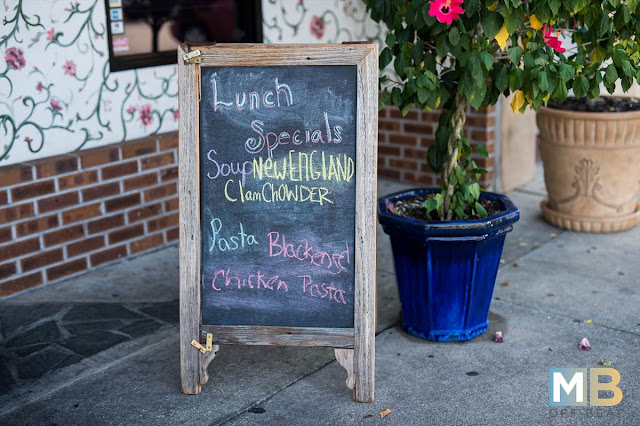 Lunch
Specials
Soup NEW ENGLAND
ClamCHOWDER
Pasta Blackened
Chicken Pasta
MB
OFF BEAT